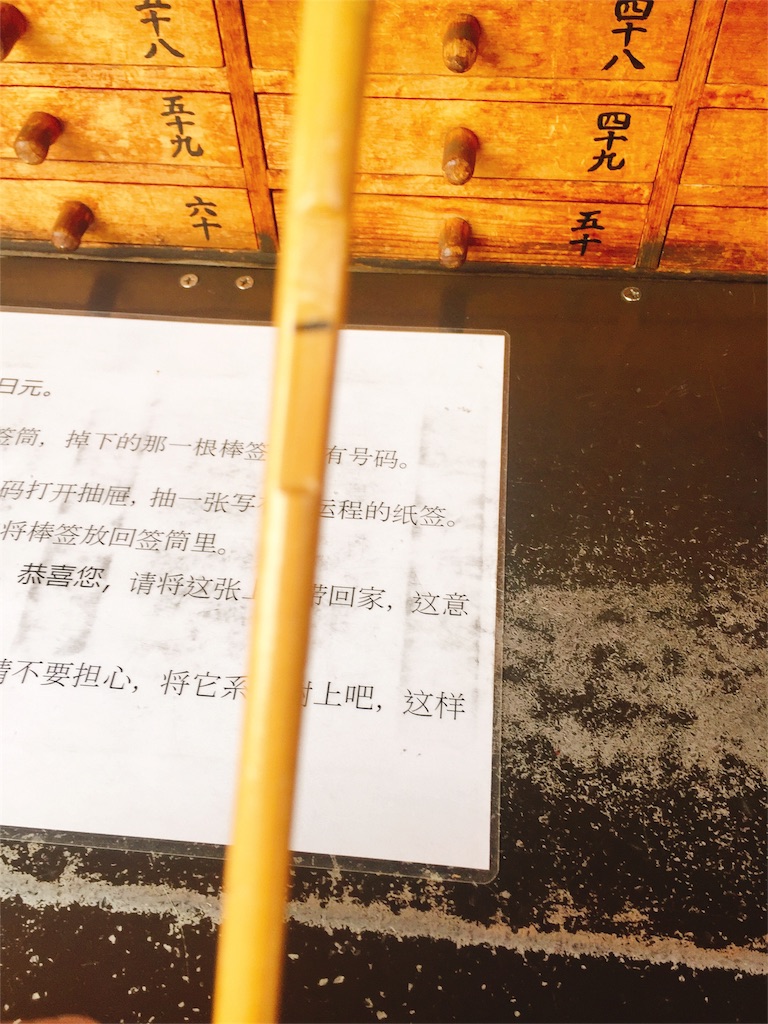 五十八
四十八
五十九
四十九
六十
五十
日元。
签筒，掉下的那一根棒签 有号码。
码打开抽屉，抽一张写 运程的纸签。
将棒签放回签筒里。
恭喜您，请将这张 带回家，这意
请不要担心，将它系 树上吧，这样